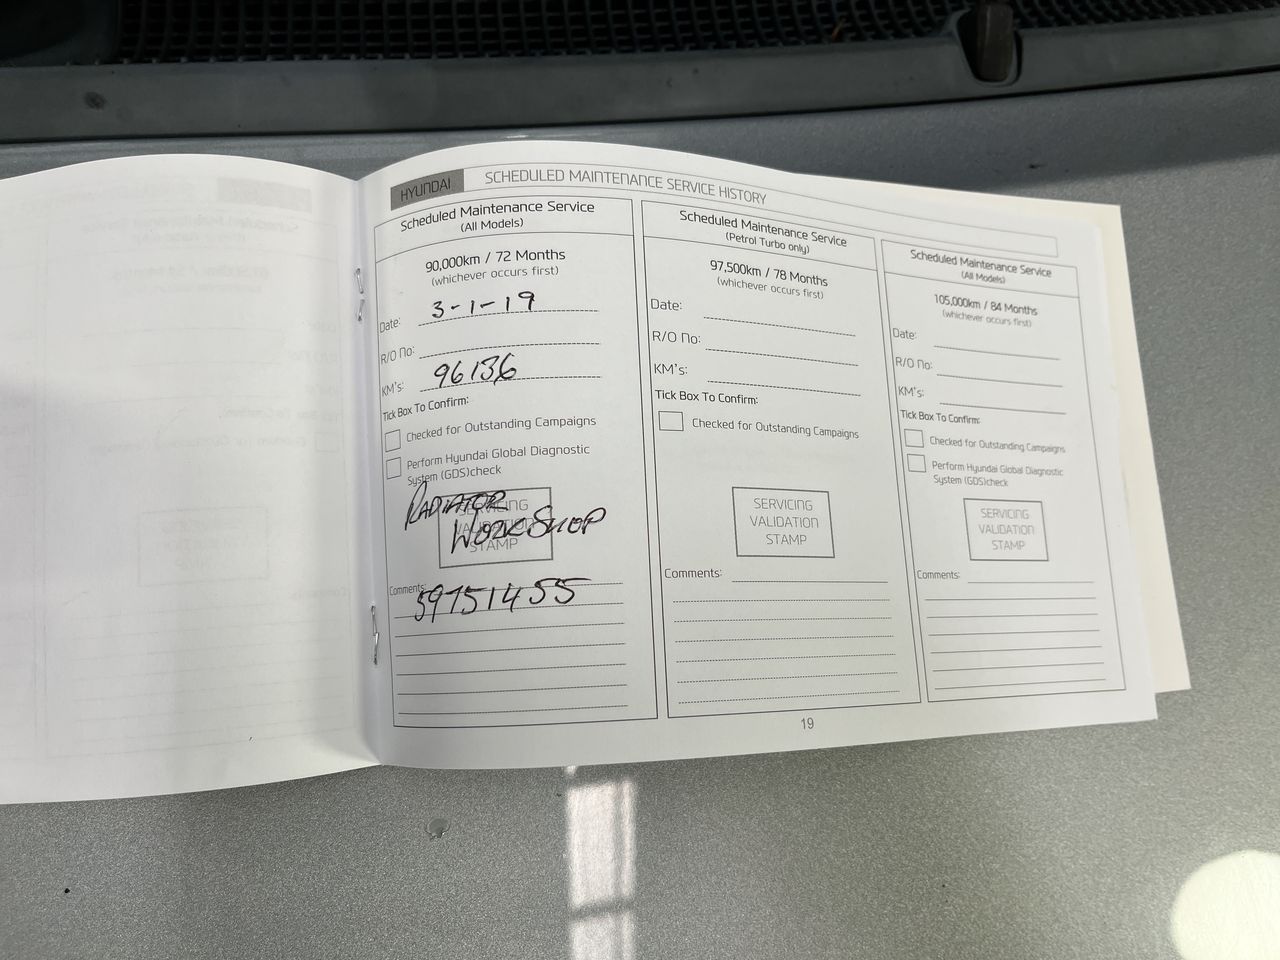 HYUNDAI
SCHEDULED MAINTENANCE SERVICE HISTORY
Scheduled Maintenance Service
(All Models)
90,000km / 72 Months
(whichever occurs first)
Date: 3-1-19
R/O No:
KM's: 96136
Tick Box To Confirm:
Checked for Outstanding Campaigns
Perform Hyundai Global Diagnostic
System (GDS)check
SERVICING
VALIDATION
STAMP
RADIATOR
WORKSHOP
Comments:
59751455
Scheduled Maintenance Service
(Petrol Turbo only)
97,500km / 78 Months
(whichever occurs first)
Date:
R/O No:
KM's:
Tick Box To Confirm:
Checked for Outstanding Campaigns
SERVICING
VALIDATION
STAMP
Comments:
Scheduled Maintenance Service
(All Models)
105,000km / 84 Months
(whichever occurs first)
Date:
R/O No:
KM's:
Tick Box To Confirm:
Checked for Outstanding Campaigns
Perform Hyundai Global Diagnostic
System (GDS)check
SERVICING
VALIDATION
STAMP
Comments:
19